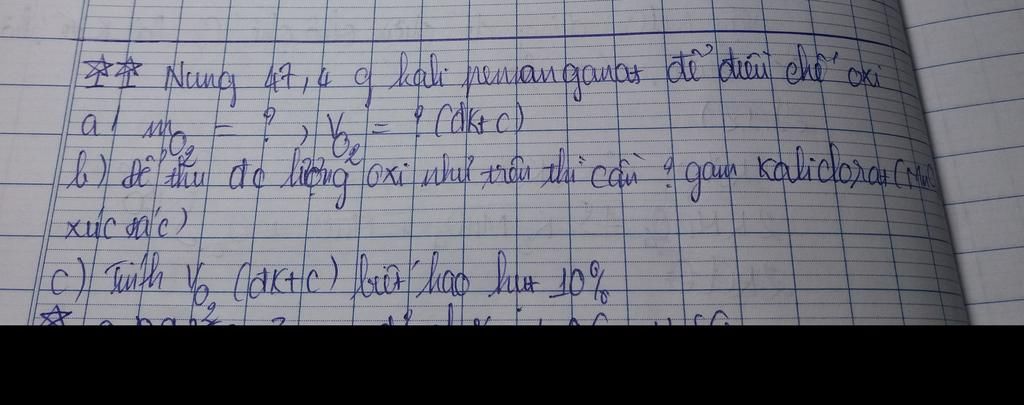 ** Nung 47,4 g kali pemanganat để điều chế oxi
a) mO2 = ? , VO2 = ? (đktc)
b) để thu đc lượng oxi như trên thì cần ? gam kaliclorat (MnO
xúc tác)
c) Tính VO2 (đktc) biết hao hụt 10%